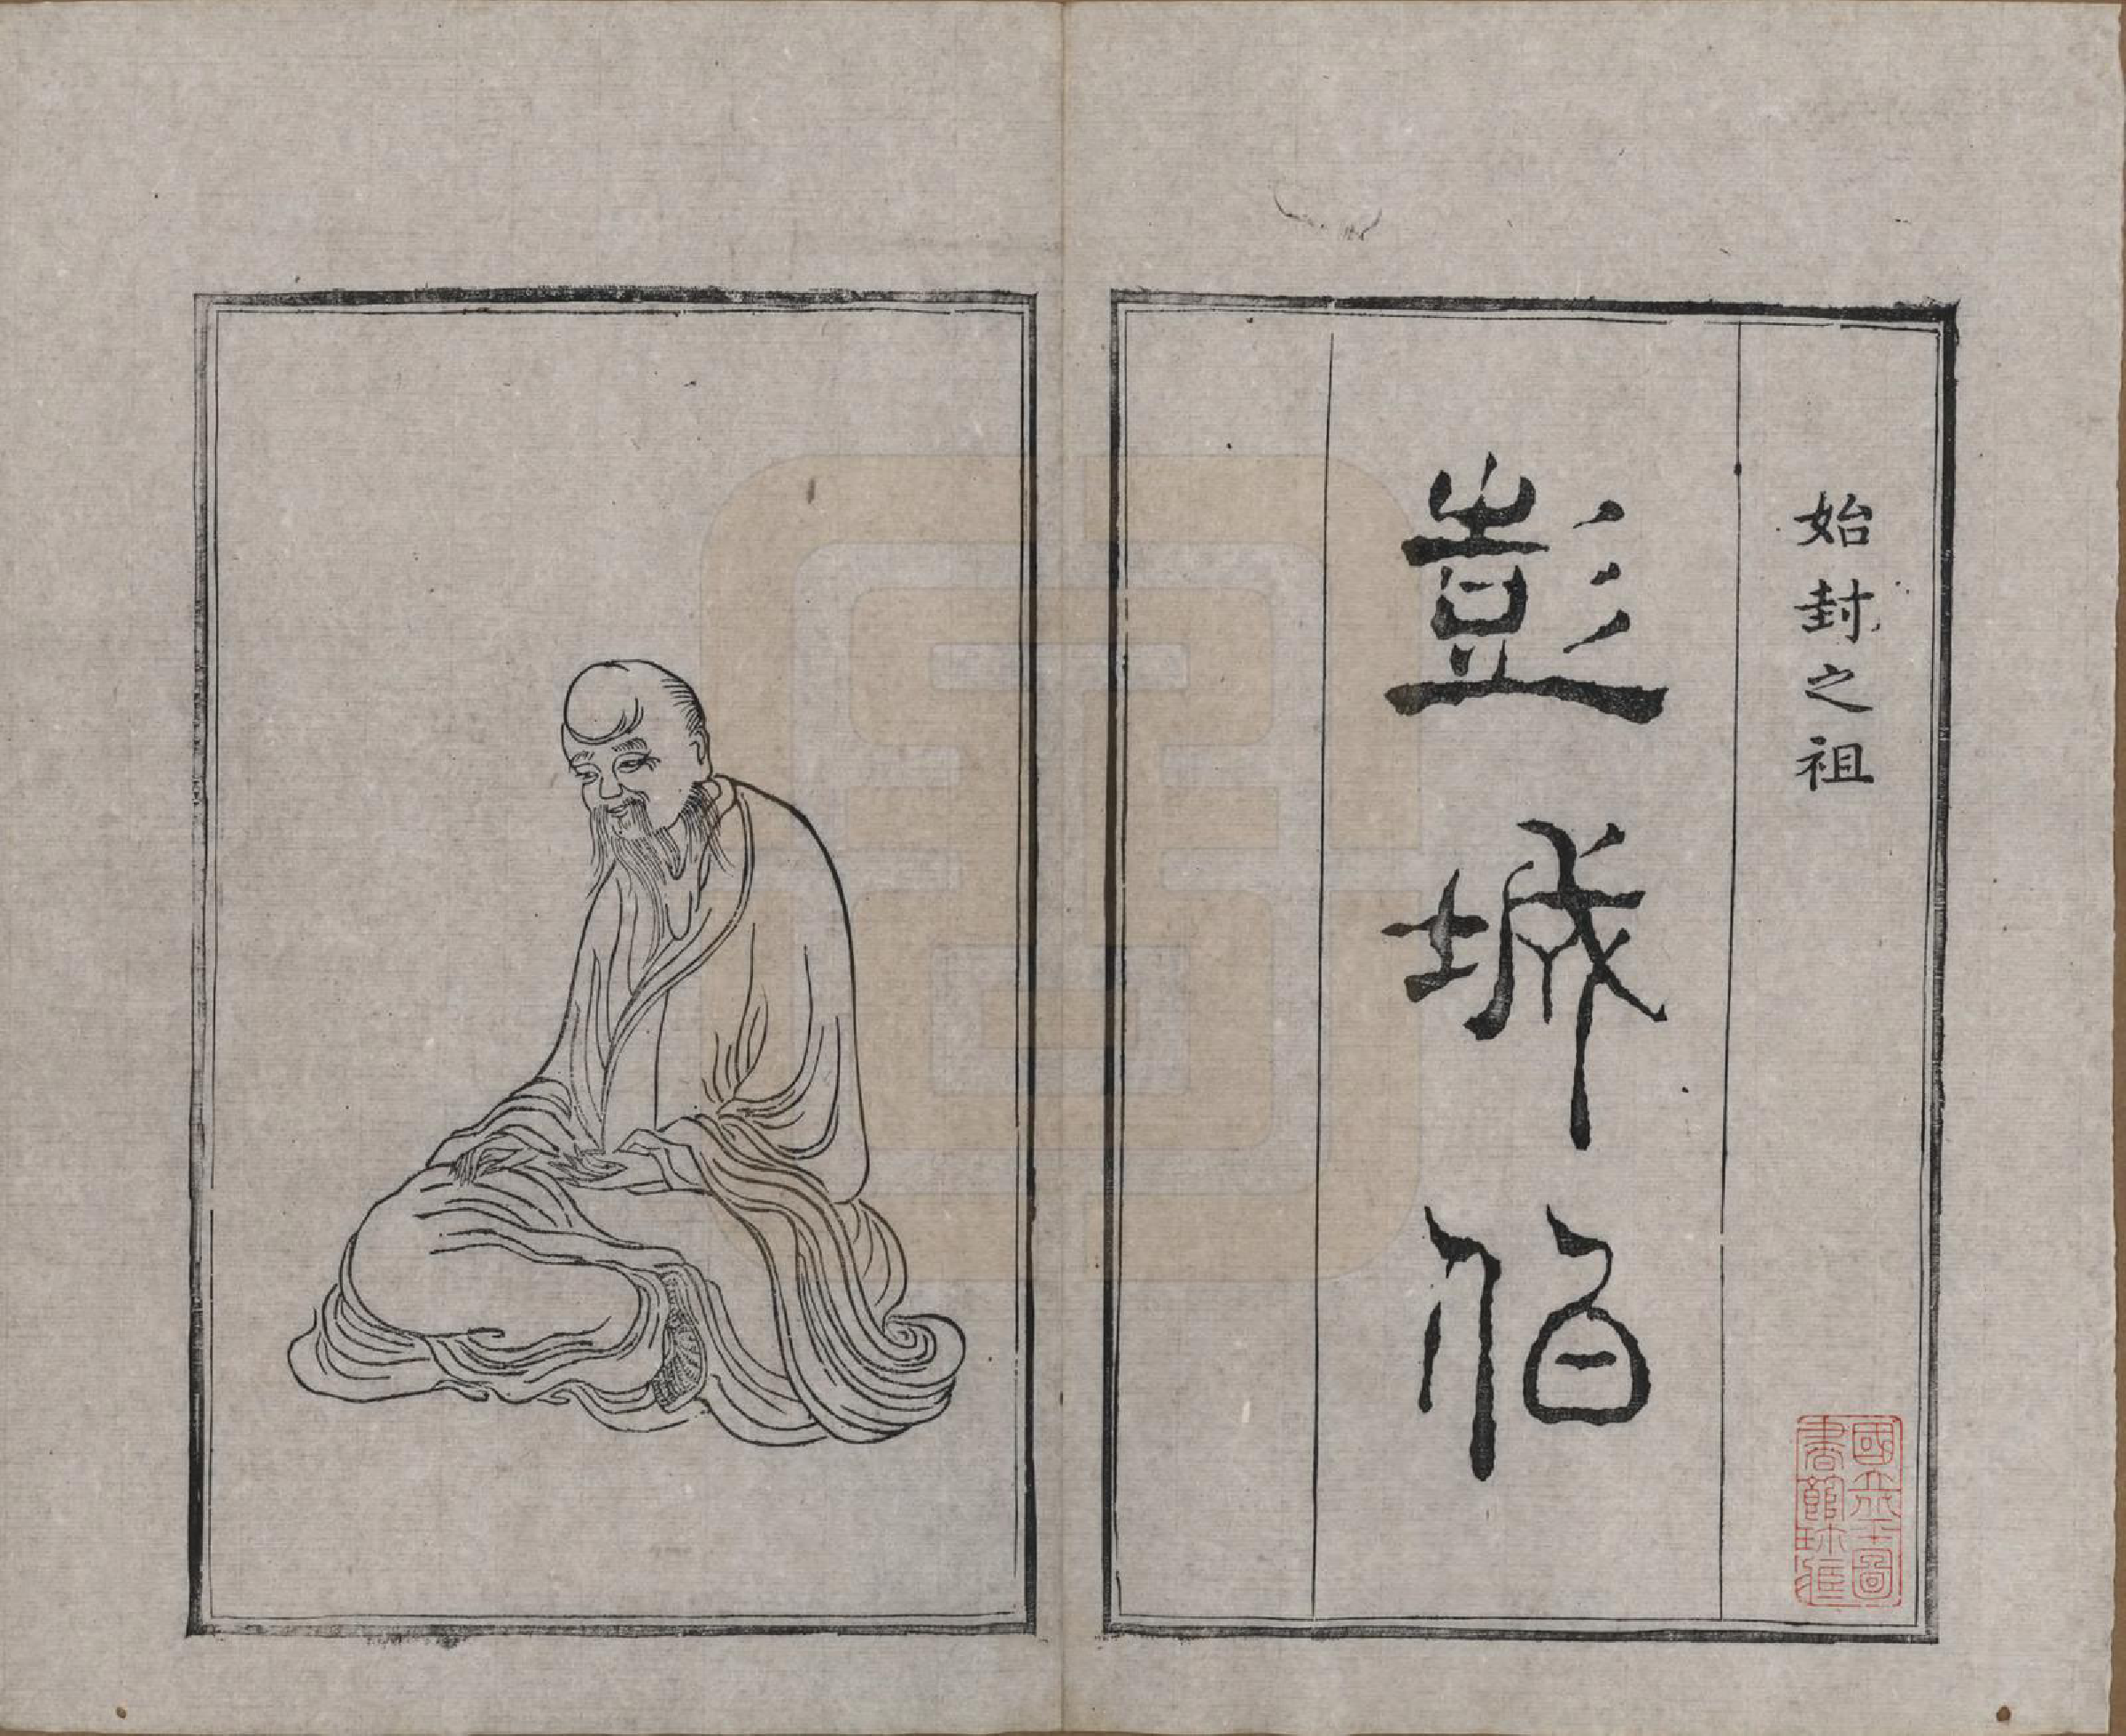 始封之祖
彭城伯
國立圖
書館珎藏